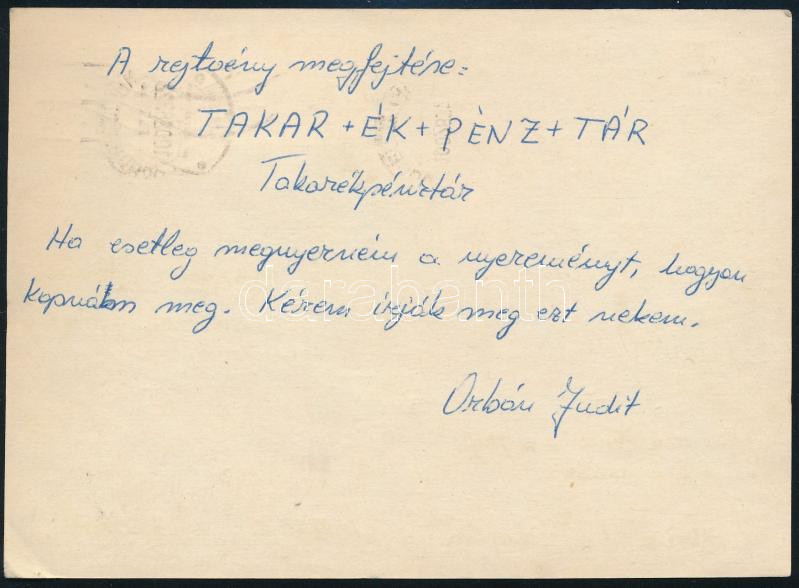 A rejtvény megfejtése:
TAKAR + ÉK + PÈNZ + TÁR
Takarékpénztár
Ha esetleg megnyerném a nyereményt, hogyan
kapnám meg. Kérem írják meg ezt nekem.
darabanth
Orbán Judit